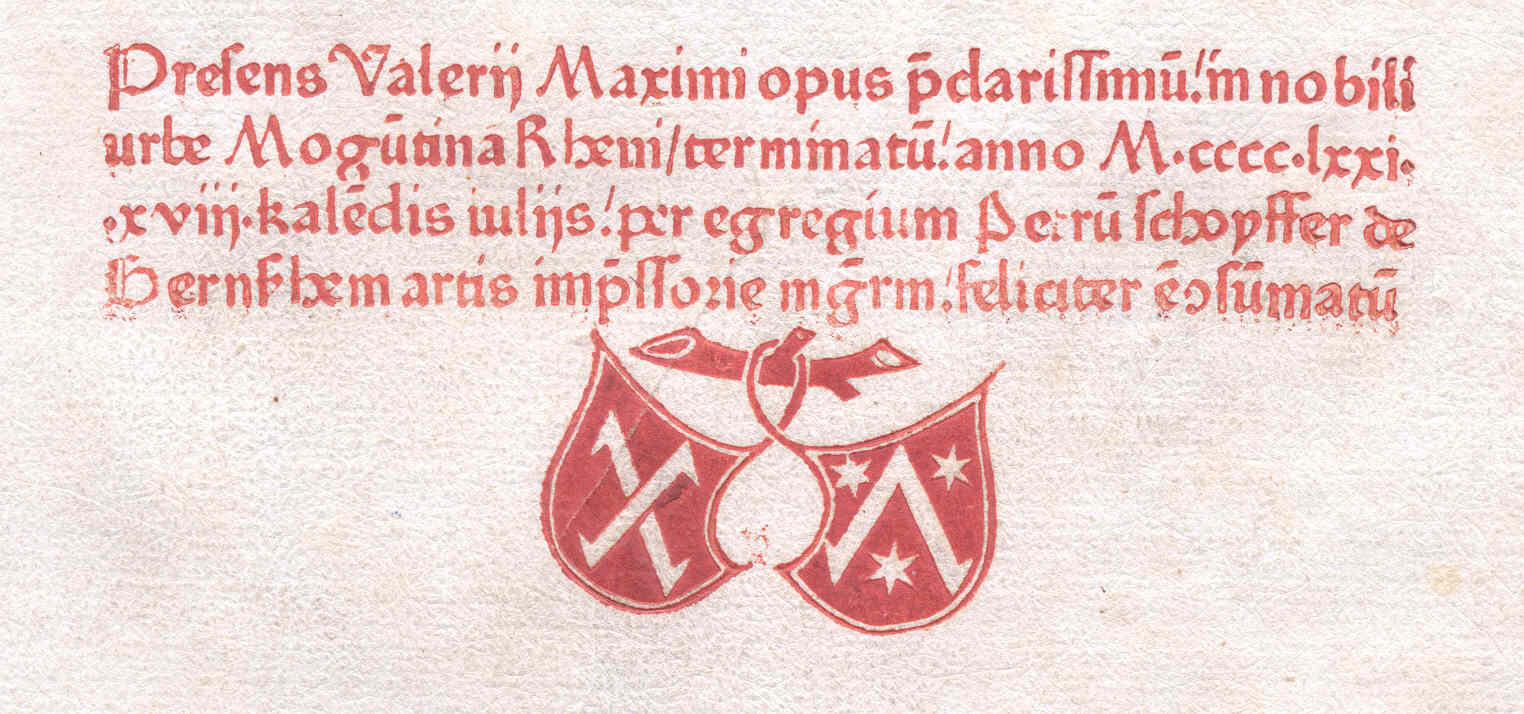 Preſens Valerij Maximi opus p̄clariſſimū/in nobili
urbe Mogūtina Rheni/terminatū/anno M·cccc·lxxi·
·xviij·kalēdis iulijs/per egregium Petrū ſchoyffer de
Gernſhem artis imp̄ſſorie mḡrm/feliciter ē ↄſūmatū